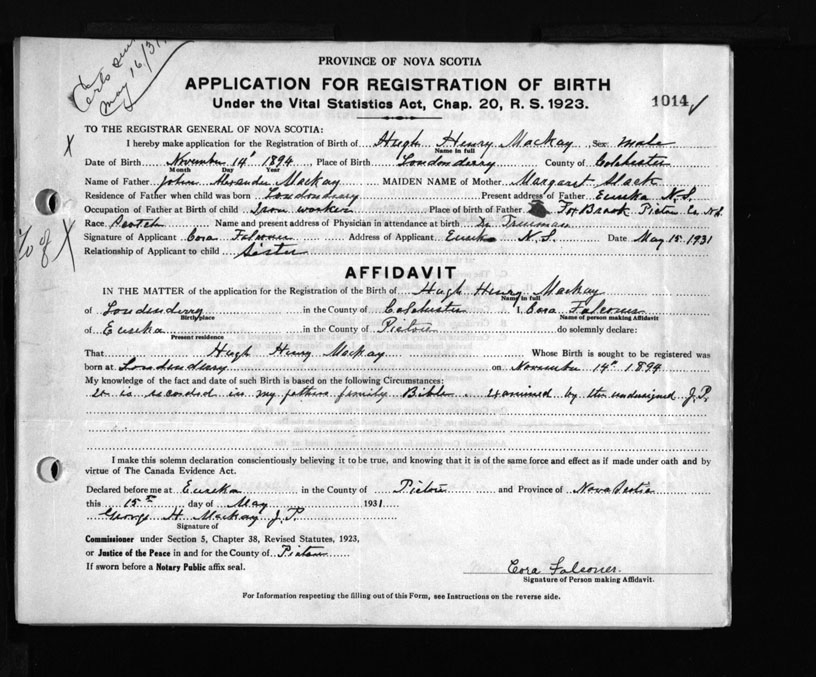 Certs sent
May 16/31
PROVINCE OF NOVA SCOTIA
APPLICATION FOR REGISTRATION OF BIRTH
Under the Vital Statistics Act, Chap. 20, R. S. 1923.
1014
TO THE REGISTRAR GENERAL OF NOVA SCOTIA:
I hereby make application for the Registration of Birth of Hugh Henry MacKay Sex male
Name in full
Date of Birth November 14 1894 Place of Birth Londonderry County of Colchester
Month Day Year
Name of Father John Alexander MacKay MAIDEN NAME of Mother Margaret Slack
Residence of Father when child was born Londonderry Present address of Father Eureka N.S.
Occupation of Father at Birth of child Iron worker Place of birth of Father Fox Brook Pictou Co N.S.
Race Scotch Name and present address of Physician in attendance at birth Dr
Signature of Applicant Cora Falconer Address of Applicant Eureka N.S. Date May 15 1931
Relationship of Applicant to child Sister
AFFIDAVIT
IN THE MATTER of the application for the Registration of the Birth of Hugh Henry MacKay
Name in full
of Londonderry in the County of Colchester I, Cora Falconer
Birthplace Name of person making Affidavit
of Eureka in the County of Pictou do solemnly declare:
Present residence
That Hugh Henry MacKay Whose Birth is sought to be registered was
born at Londonderry on November 14th 1894
My knowledge of the fact and date of such Birth is based on the following Circumstances:
It is recorded in my fathers family Bible examined by the undersigned J.P.
I make this solemn declaration conscientiously believing it to be true, and knowing that it is of the same force and effect as if made under oath and by
virtue of The Canada Evidence Act.
Declared before me at Eureka in the County of Pictou and Province of Nova Scotia
this 15th day of May 1931
George H. MacKay J.P.
Signature of
Commissioner under Section 5, Chapter 38, Revised Statutes, 1923,
or Justice of the Peace in and for the County of Pictou
If sworn before a Notary Public affix seal.
Cora Falconer
Signature of Person making Affidavit.
For Information respecting the filling out of this Form, see Instructions on the reverse side.